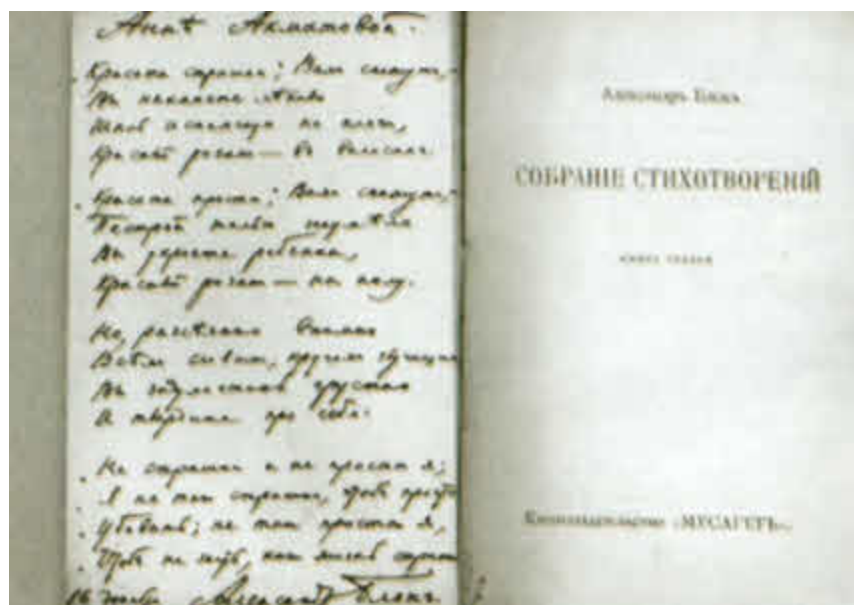 Аннѣ Ахматовой.
"Красота страшна", Вам скажут,-
Вы накинете лѣниво
Шаль испанскую на плечи,
Красный розан — в волосах.
"Красота проста", Вам скажут,-
Пестрой шалью неумѣло
Вы укроете ребенка,
Красный розан — на полу.
Но, разсѣянно внимая
Всѣм словам, кругом звучащим
Вы задумаетесь грустно
И твердите про себя:
Не страшна и не проста я;
Я не так страшна, чтоб просто
Убивать; не так проста я,
Чтоб не знать, как жизнь страшна
16 Александр Блокъ
Александръ Блокъ
СОБРАНІЕ СТИХОТВОРЕНІЙ
книга
Книгоиздательство «МУСАГЕТЪ».